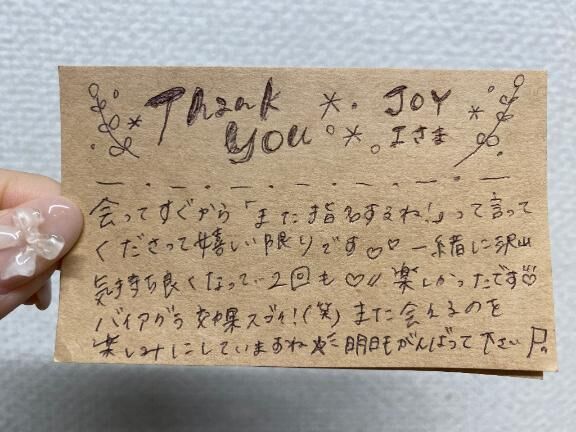 Thank You JOY
Iさま
会ってすぐから「また指名するね!」って言って
くださって嬉しい限りです♡♡ 一緒に沢山
気持ち良くなって…2回も♡〃 楽しかったです♡
バイアグラ効果スゴイ!(笑) また会えるのを
楽しみにしていますね 明日もがんばって下さい